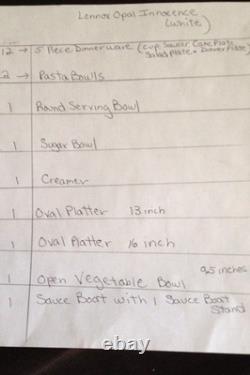 Lennox Opal Innocence
(white)
12 → 5 Piece Dinnerware (Cup Saucer Cake Plate
Salad Plate + Dinner Plate)
2 → Pasta Bowlls
1 Round Serving Bowl
1 Sugar Bowl
1 Creamer
1 Oval Platter 13 inch
1 Oval Platter 16 inch
1 Open Vegetable Bowl 9.5 inches
1 Sauce Boat with 1 Sauce Boat
Stand
ebay